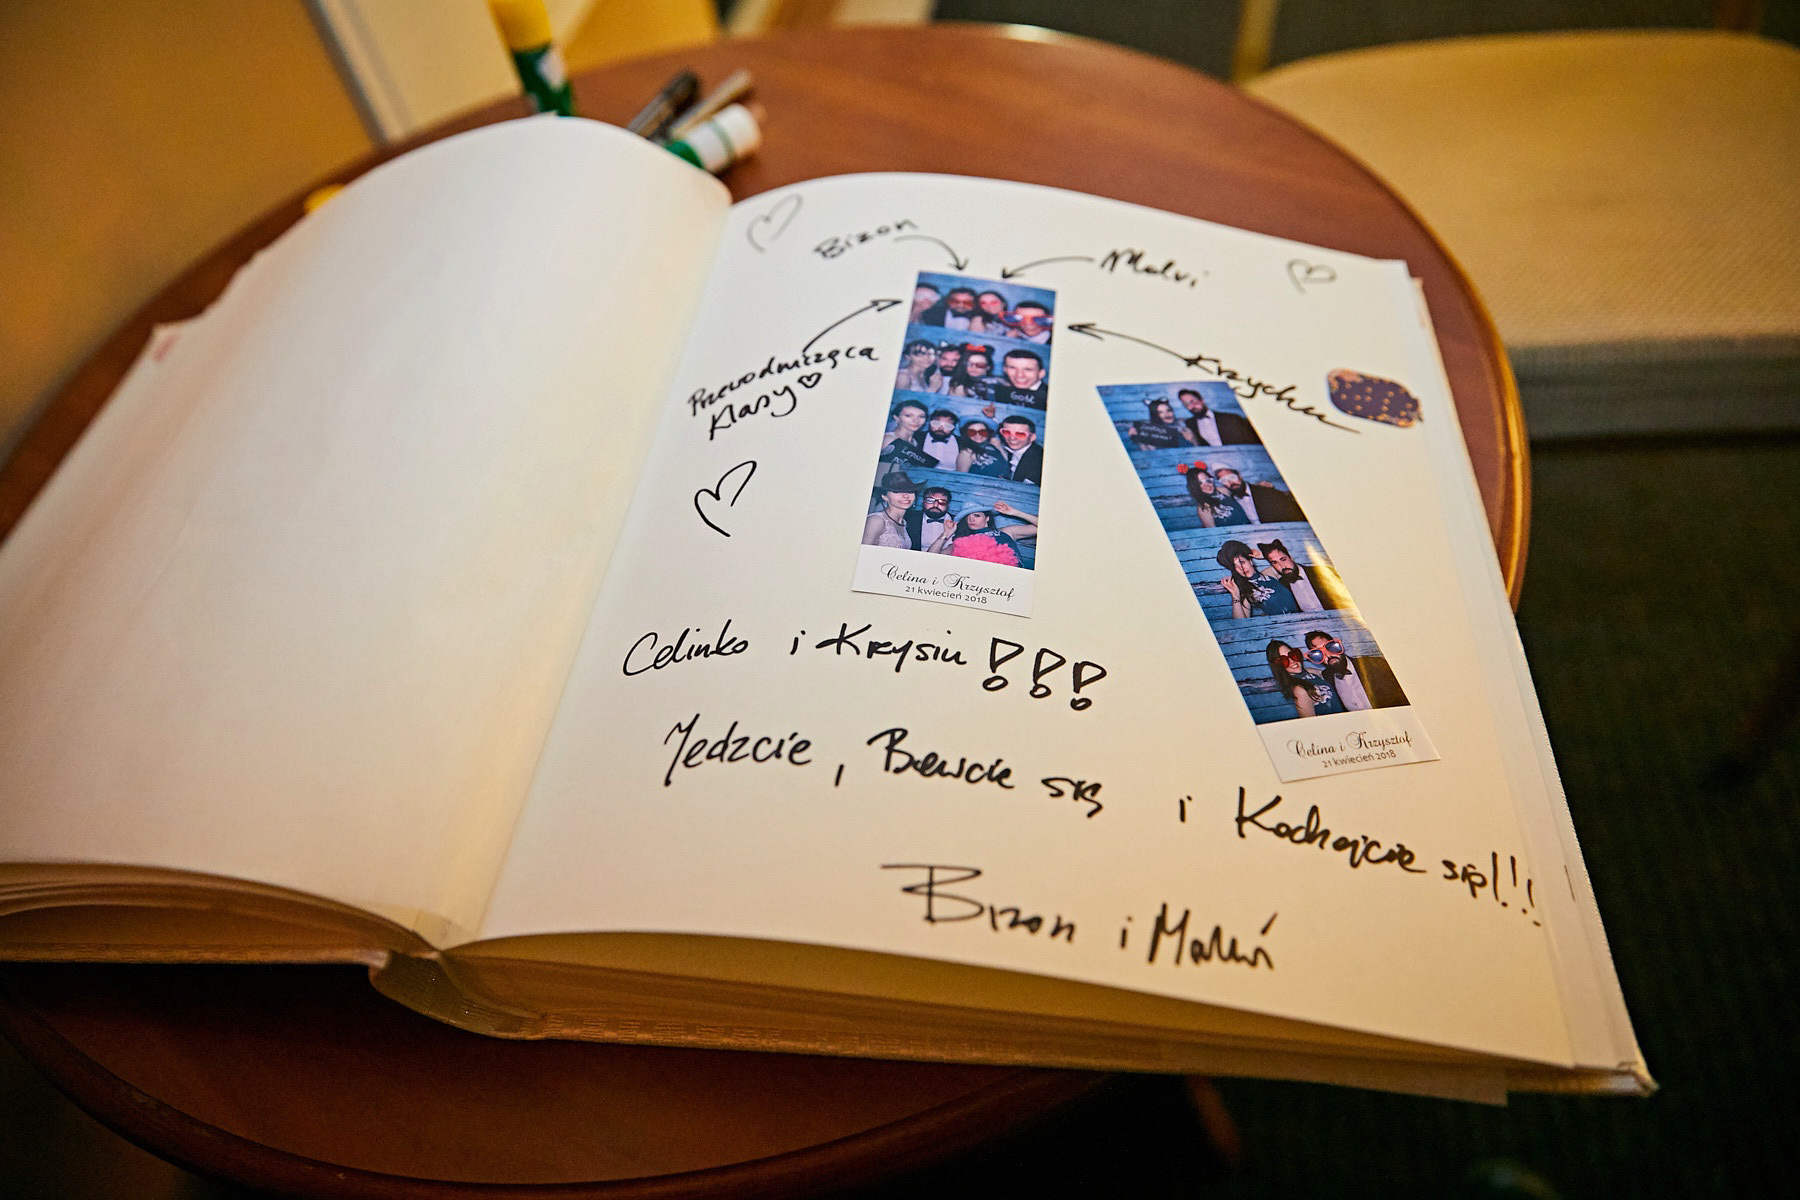 Bizon
Malvi
Przewodnicząca
Klasy
Krzychu
Gość
Celina i Krzysztof
21 kwiecień 2018
Celina i Krzysztof
21 kwiecień 2018
Celinko i Krysiu !!!
Jedzcie, Bawcie się i Kochajcie się!!!
Bizon i Malwi